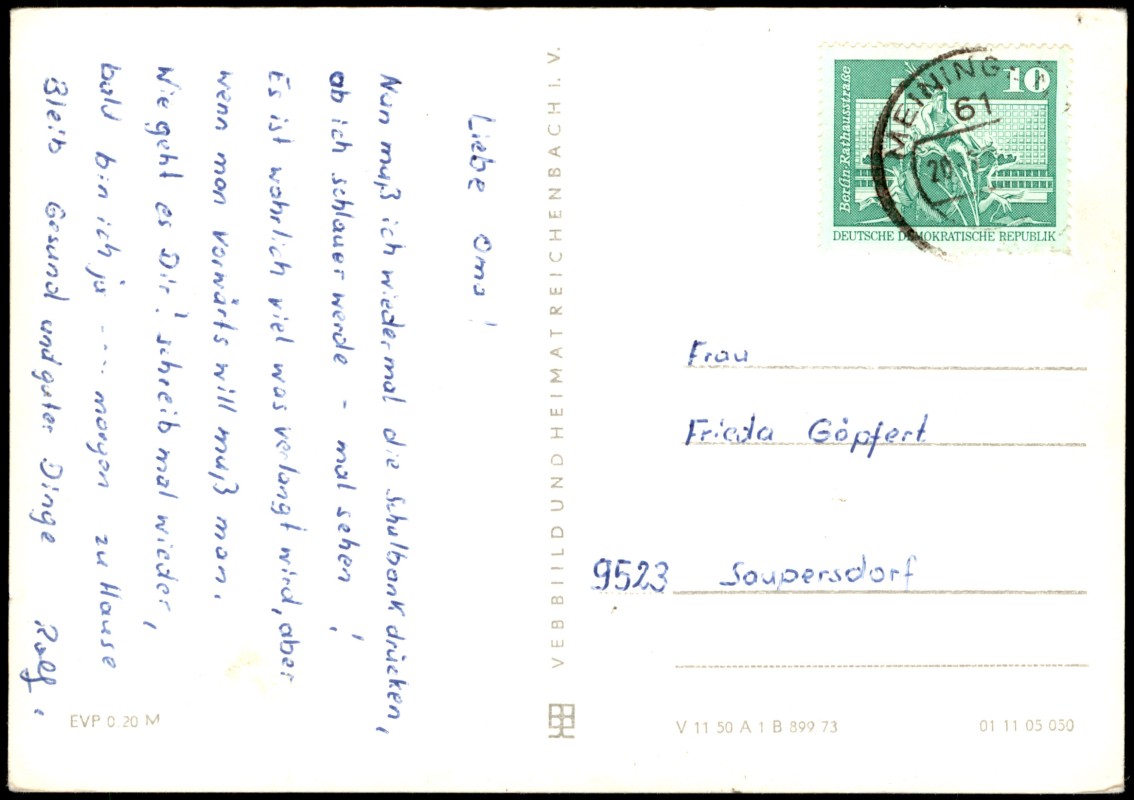 Liebe Oma!
Nun muß ich wiedermal die Schulbank drücken,
ob ich schlauer werde - mal sehen!
Es ist wahrlich viel was verlangt wird, aber
wenn man vorwärts will muß man.
Wie geht es Dir? Schreib mal wieder,
bald bin ich ja .... morgen zu Hause
Bleib Gesund und guter Dinge
Rolf.
EVP 0.20 M
VEB BILD UND HEIMAT REICHENBACH I. V.
Berlin-Rathausstraße
10
DEUTSCHE DEMOKRATISCHE REPUBLIK
61
20
Frau
Frieda Göpfert
9523 Saupersdorf
V 11 50 A 1 B 899 73
01 11 05 050